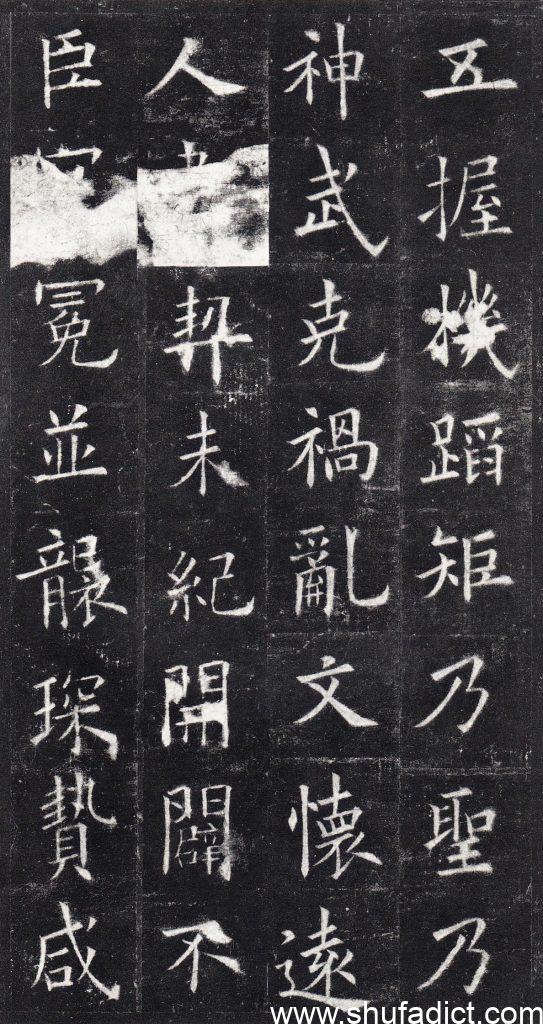 五握機蹈矩乃聖乃
神武克禍亂文懷遠
人契未紀開闢不
臣冕並襲琛贄咸
www.shufadict.com